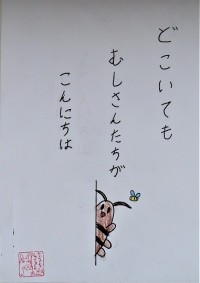 どこいても
むしさんたちが
こんにちは